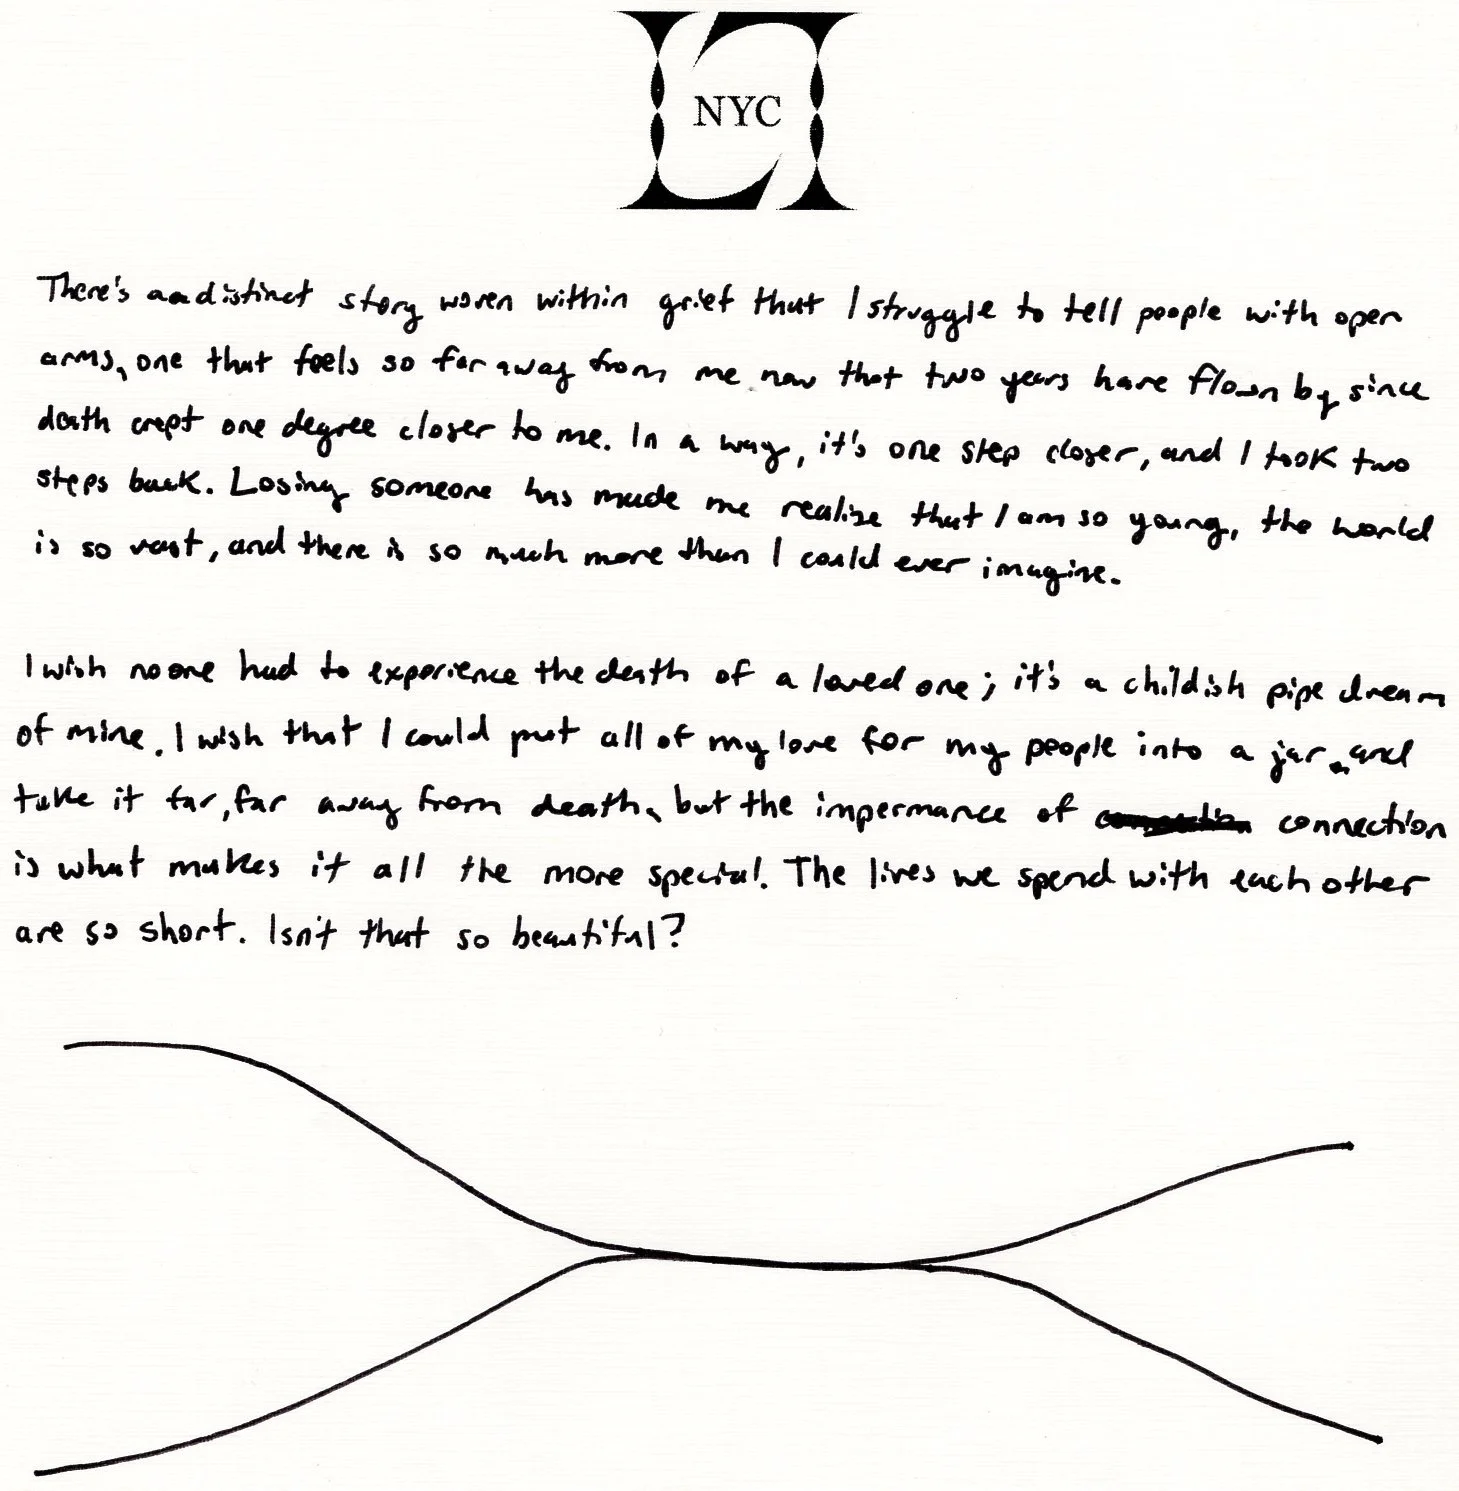 NYC
There's a distinct story woven within grief that I struggle to tell people with open
arms, one that feels so far away from me now that two years have flown by since
death crept one degree closer to me. In a way, it's one step closer, and I took two
steps back. Losing someone has made me realize that I am so young, the world
is so vast, and there is so much more than I could ever imagine.
I wish no one had to experience the death of a loved one; it's a childish pipe dream
of mine. I wish that I could put all of my love for my people into a jar and
take it far, far away from death, but the impermance of connection
is what makes it all the more special. The lives we spend with each other
are so short. Isn't that so beautiful?